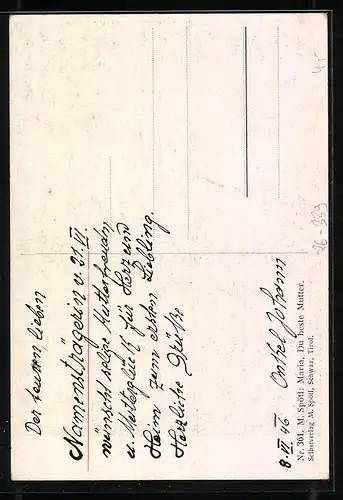 Der teuren lieben
Namensträgerin v. 21. VI.
wünscht selige Mutterfreuden
u. Mutterglück für Herz und
Heim zum ersten Liebling.
Herzliche Grüße.
8. VI 46 Onkel Johann
Nr. 361. M. Spötl: Maria, Du beste Mutter.
Selbstverlag M. Spötl, Schwaz, Tirol.